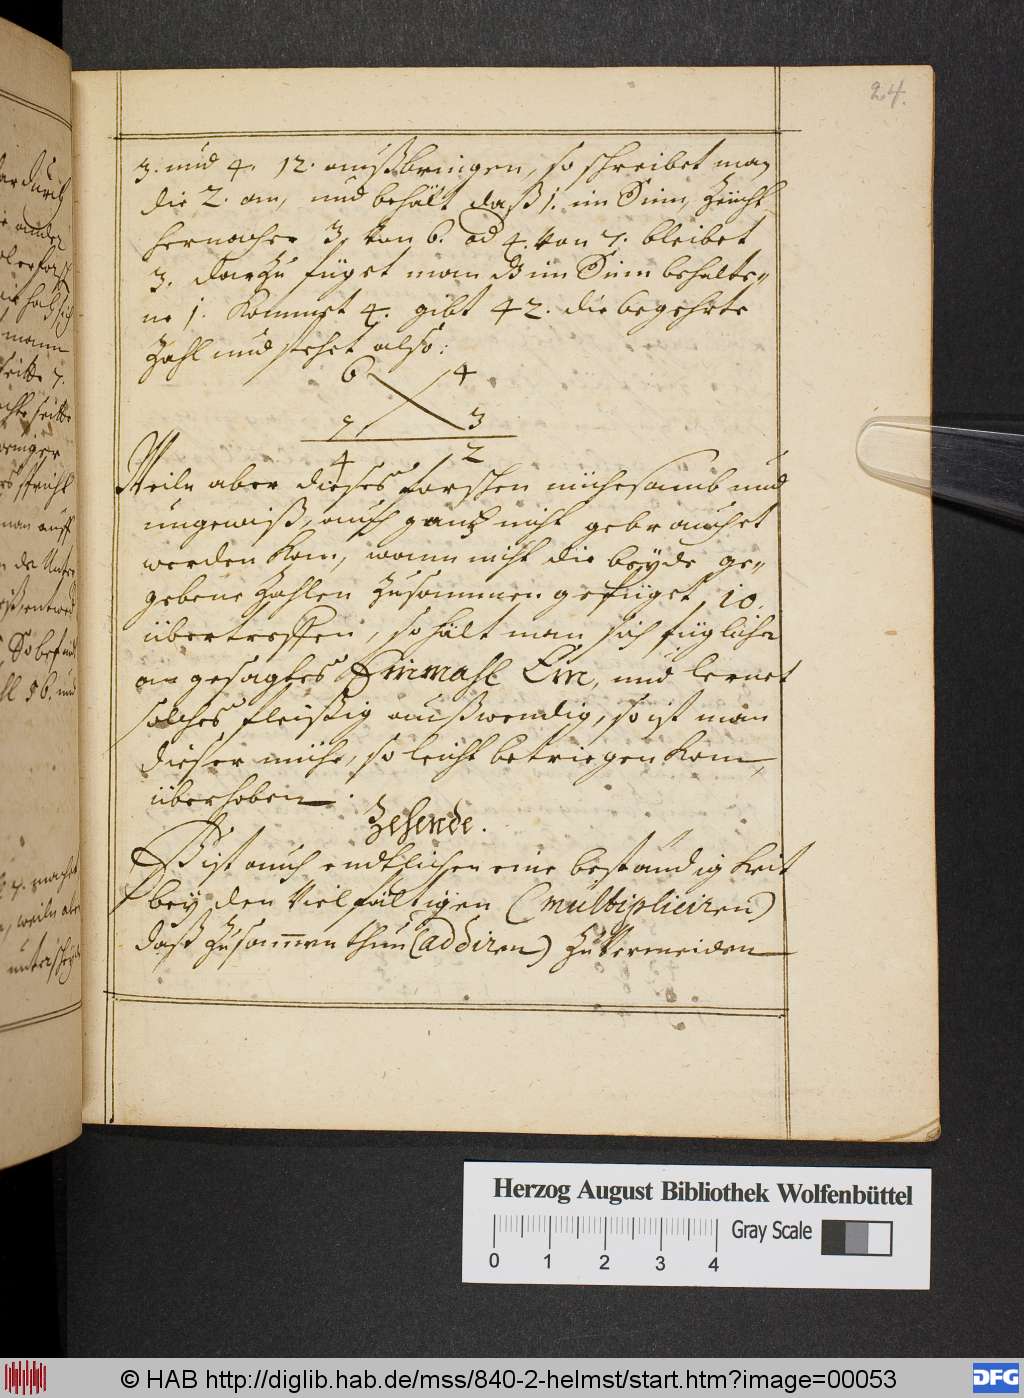 24.
3. und 4. 12. außbringen, so schreibet man
die 2. an, und behält daß 1. im Sinn, Zeücht
hernacher 3. von 6. od 4. von 7. bleibet
3. darzu füget man dß im Sinn behalte„
ne 1. kommet 4. gibt 42. die begehrte
Zahl und stehet also:
6 4
7 3
4 2
Weiln aber dieses forschen mühesamb und
ungewiß, auch gantz nicht gebrauchet
werden kan, wann nicht die beyde ge„
gebene Zahlen zusammen gefüget, 10.
übertreffen, so hält man sich füglicher
an gesagtes Einmahl Ein, und lernet
solches fleißig außwendig, so ist man
dieser mühe, so leicht betriegen kan,
überhoben.
Zehende.
Ist auch endtlichen eine beständigkeit
bey den Vielfältigen (multipliciren)
daß zusam̅en thun (addiren) zu Vermeiden
Herzog August Bibliothek Wolfenbüttel
Gray Scale
0 1 2 3 4
© HAB http://diglib.hab.de/mss/840-2-helmst/start.htm?image=00053
DFG